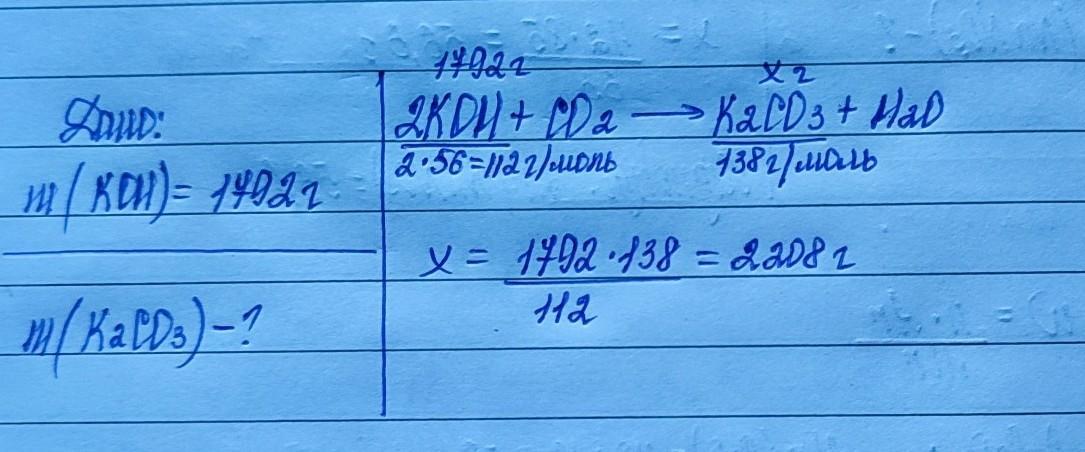 Дано:
m(KOH)= 1792г
m(K2CO3)-?
1792г x г
2KOH + CO2 → K2CO3 + H2O
2·56=112г/моль 138г/моль
x = 1792·138 = 2208г
112